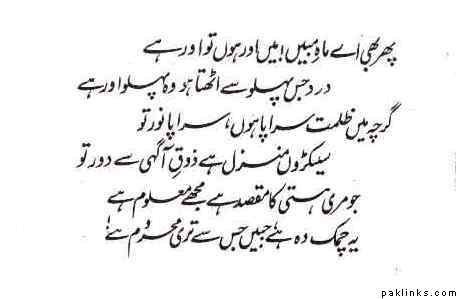 پھر بھی اے ماہِ مبیں! میں اور ہوں تو اور ہے
درد جس پہلو سے اٹھتا ہو وہ پہلو اور ہے
گرچہ میں ظلمت سراپا ہوں، سراپا نور تو
سیکڑوں منزل ہے ذوقِ آگہی سے دور تو
جو مری ہستی کا مقصد ہے مجھے معلوم ہے
یہ چمک وہ ہے جبیں جس سے تری محروم ہے
paklinks.com